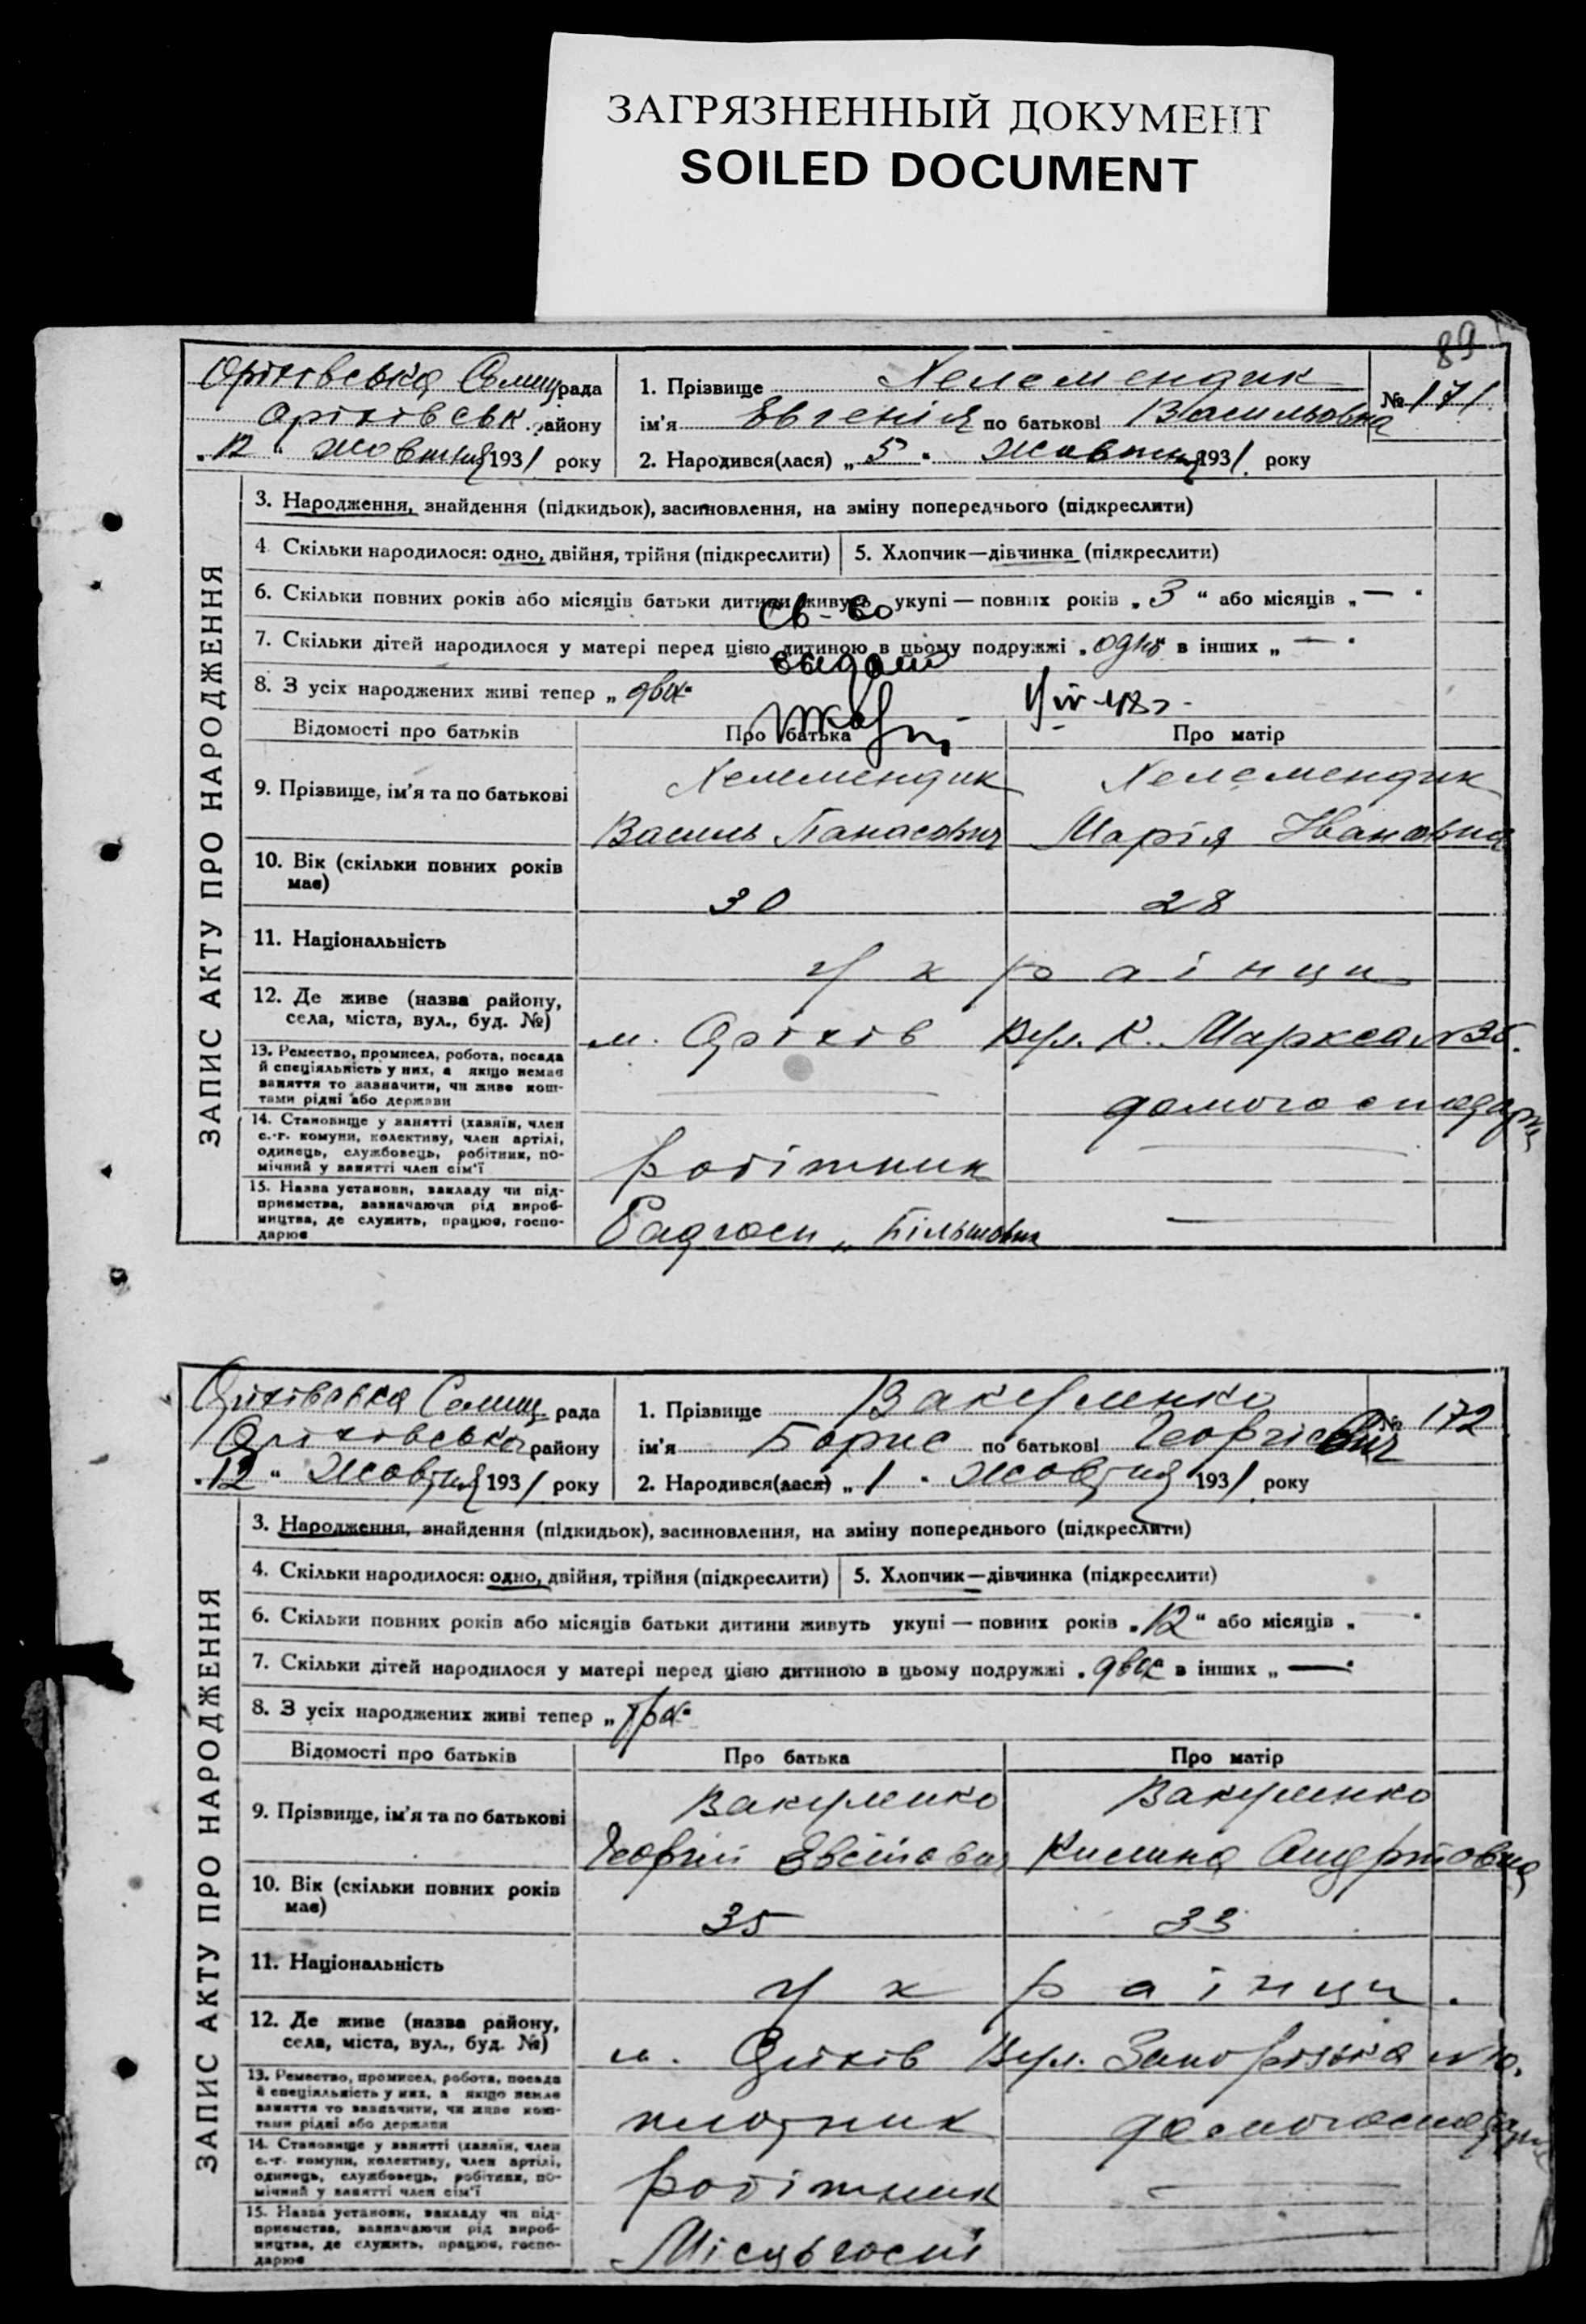 ЗАГРЯЗНЕННЫЙ ДОКУМЕНТ
SOILED DOCUMENT
89
Оріхівська Селищ рада
Оріхівськ району
„12“ Жовтня 1931 року
1. Прізвище Хелемендик
№ 171
ім'я Євгенія по батькові Васильовна
2. Народився(лася) „5“ Жовтня 1931 року
ЗАПИС АКТУ ПРО НАРОДЖЕННЯ
3. Народження, знайдення (підкидьок), засиновлення, на зміну попереднього (підкреслити)
4 Скільки народилося: одно, двійня, трійня (підкреслити)
5. Хлопчик—дівчинка (підкреслити)
6. Скільки повних років або місяців батьки дитини живуть укупі — повних років „3“ або місяців „—“
Св-во
7. Скільки дітей народилося у матері перед цією дитиною в цьому подружжі „одно“ в інших „—“
выдано
8. З усіх народжених живі тепер „двое“
Відомості про батьків
Про батька
Про матір
9. Прізвище, ім'я та по батькові
Хелемендик
Василь Панасович
Хелемендик
Марія Івановна
10. Вік (скільки повних років має)
30
28
11. Національність
українци
12. Де живе (назва району, села, міста, вул., буд. №)
м. Оріхів вул. К. Маркса
13. Ремество, промисел, робота, посада
й спеціяльність у них, а якщо немає
заняття то зазначити, чи живе кош-
тами рідні або держави
—
домогосподарка
14. Становище у занятті (хазяїн, член
с.-г. комуни, колективу, член артілі,
одинець, службовець, робітник, по-
мічний у занятті член сім'ї
робітник
—
15. Назва установи, закладу чи під-
приємства, зазначаючи рід вироб-
ництва, де служить, працює, госпо-
дарює
Радгосп „Більшовик
—
Оріхівська Селищ рада
Оріхівського району
„12“ Жовтня 1931 року
1. Прізвище Вакуленко
№ 172
ім'я Борис по батькові Георгієвич
2. Народився(лася) „1“ Жовтня 1931 року
ЗАПИС АКТУ ПРО НАРОДЖЕННЯ
3. Народження, знайдення (підкидьок), засиновлення, на зміну попереднього (підкреслити)
4. Скільки народилося: одно, двійня, трійня (підкреслити)
5. Хлопчик—дівчинка (підкреслити)
6. Скільки повних років або місяців батьки дитини живуть укупі — повних років „12“ або місяців „—“
7. Скільки дітей народилося у матері перед цією дитиною в цьому подружжі „двое“ в інших „—“
8. З усіх народжених живі тепер „трое“
Відомості про батьків
Про батька
Про матір
9. Прізвище, ім'я та по батькові
Вакуленко
Георгій
Вакуленко
Килина Андріївна
10. Вік (скільки повних років має)
35
33
11. Національність
українци.
12. Де живе (назва району, села, міста, вул., буд. №)
м. Оріхів вул. Запорізька №10.
13. Ремество, промисел, робота, посада
й спеціяльність у них, а якщо немає
заняття то зазначити, чи живе кош-
тами рідні або держави
плотник
домогосподарка
14. Становище у занятті (хазяїн, член
с.-г. комуни, колективу, член артілі,
одинець, службовець, робітник, по-
мічний у занятті член сім'ї
робітник
—
15. Назва установи, закладу чи під-
приємства, зазначаючи рід вироб-
ництва, де служить, працює, госпо-
дарює
Місцьгоспі
—